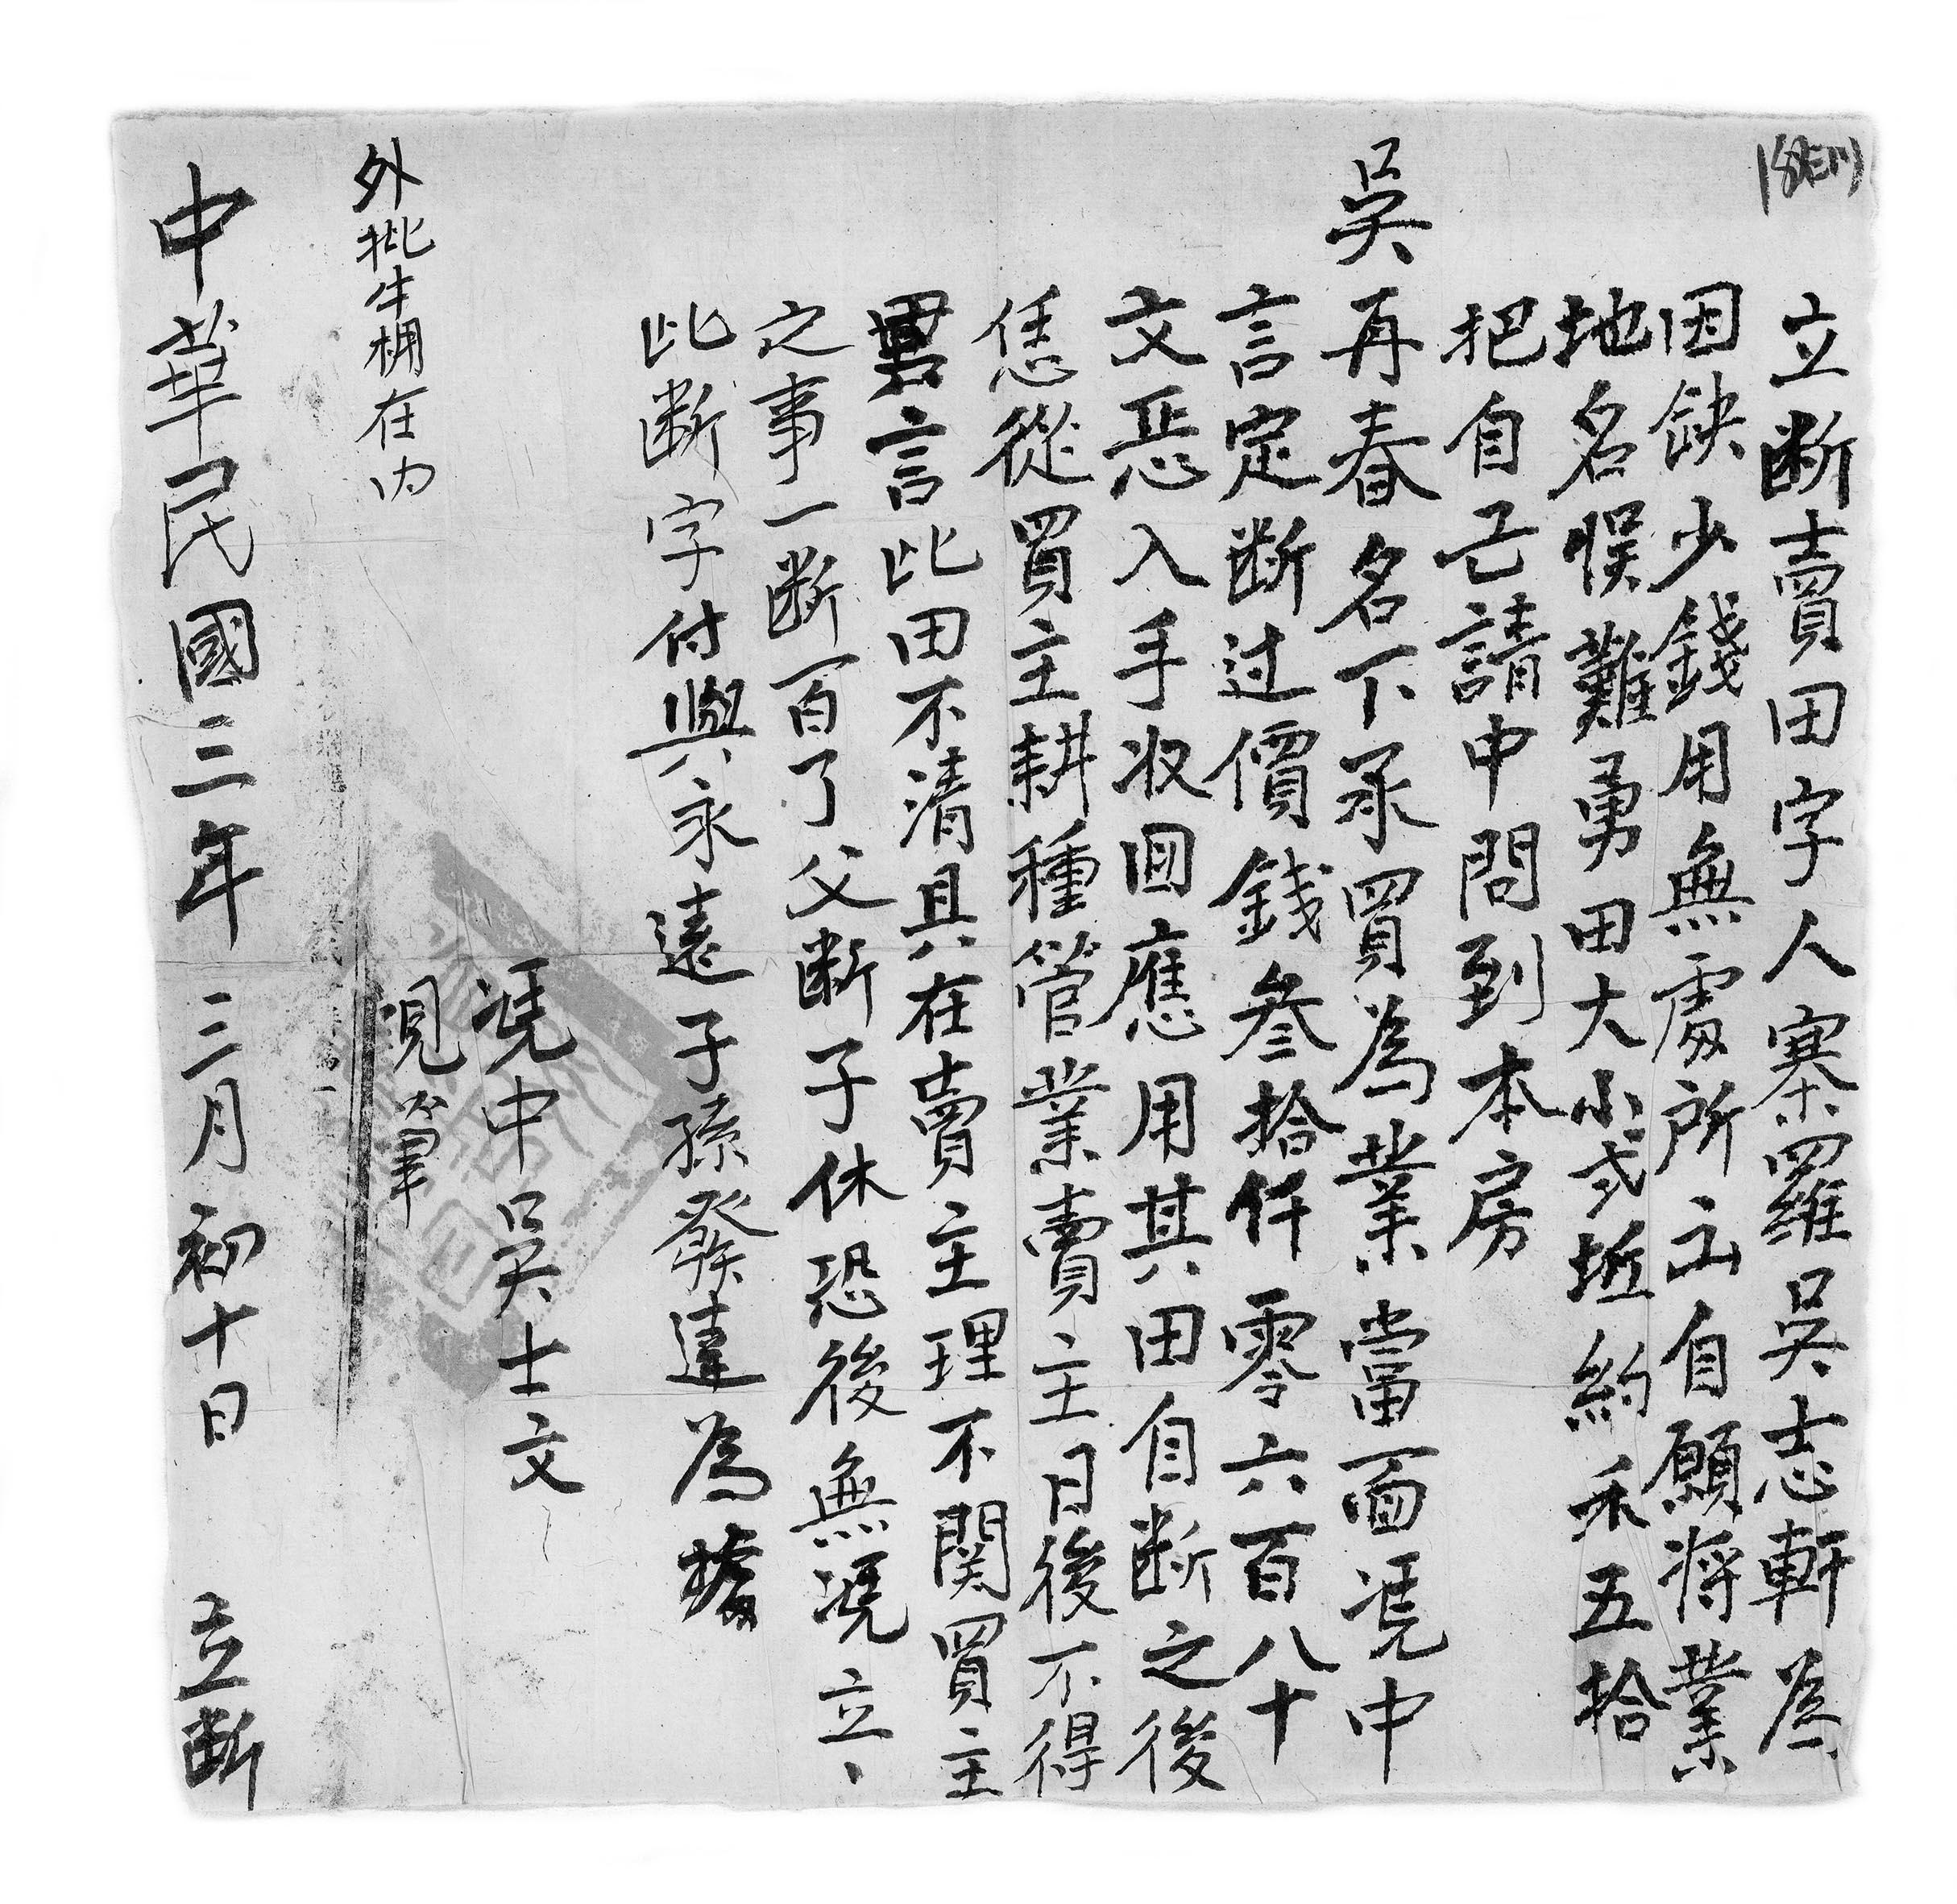 立断賣田字人寨羅吳志軒為
因缺少錢用無處所出自願将業
地名悮難勇田大小弍坵約禾五拾
把自己請中問到本房
吳再春名下承買為業當面凴中
言定断过價錢叁拾仟零六百八十
文恁入手収回應用其田自断之後
恁從買主耕種管業賣主日後不得
異言比田不清具在賣主理不関買主
之事一断百了父断子休恐後無凴立、
此断字付與永遠子孫發達為據
凴中吳士文
親筆
外批牛棚在内
中華民國三年三月初十日 立断